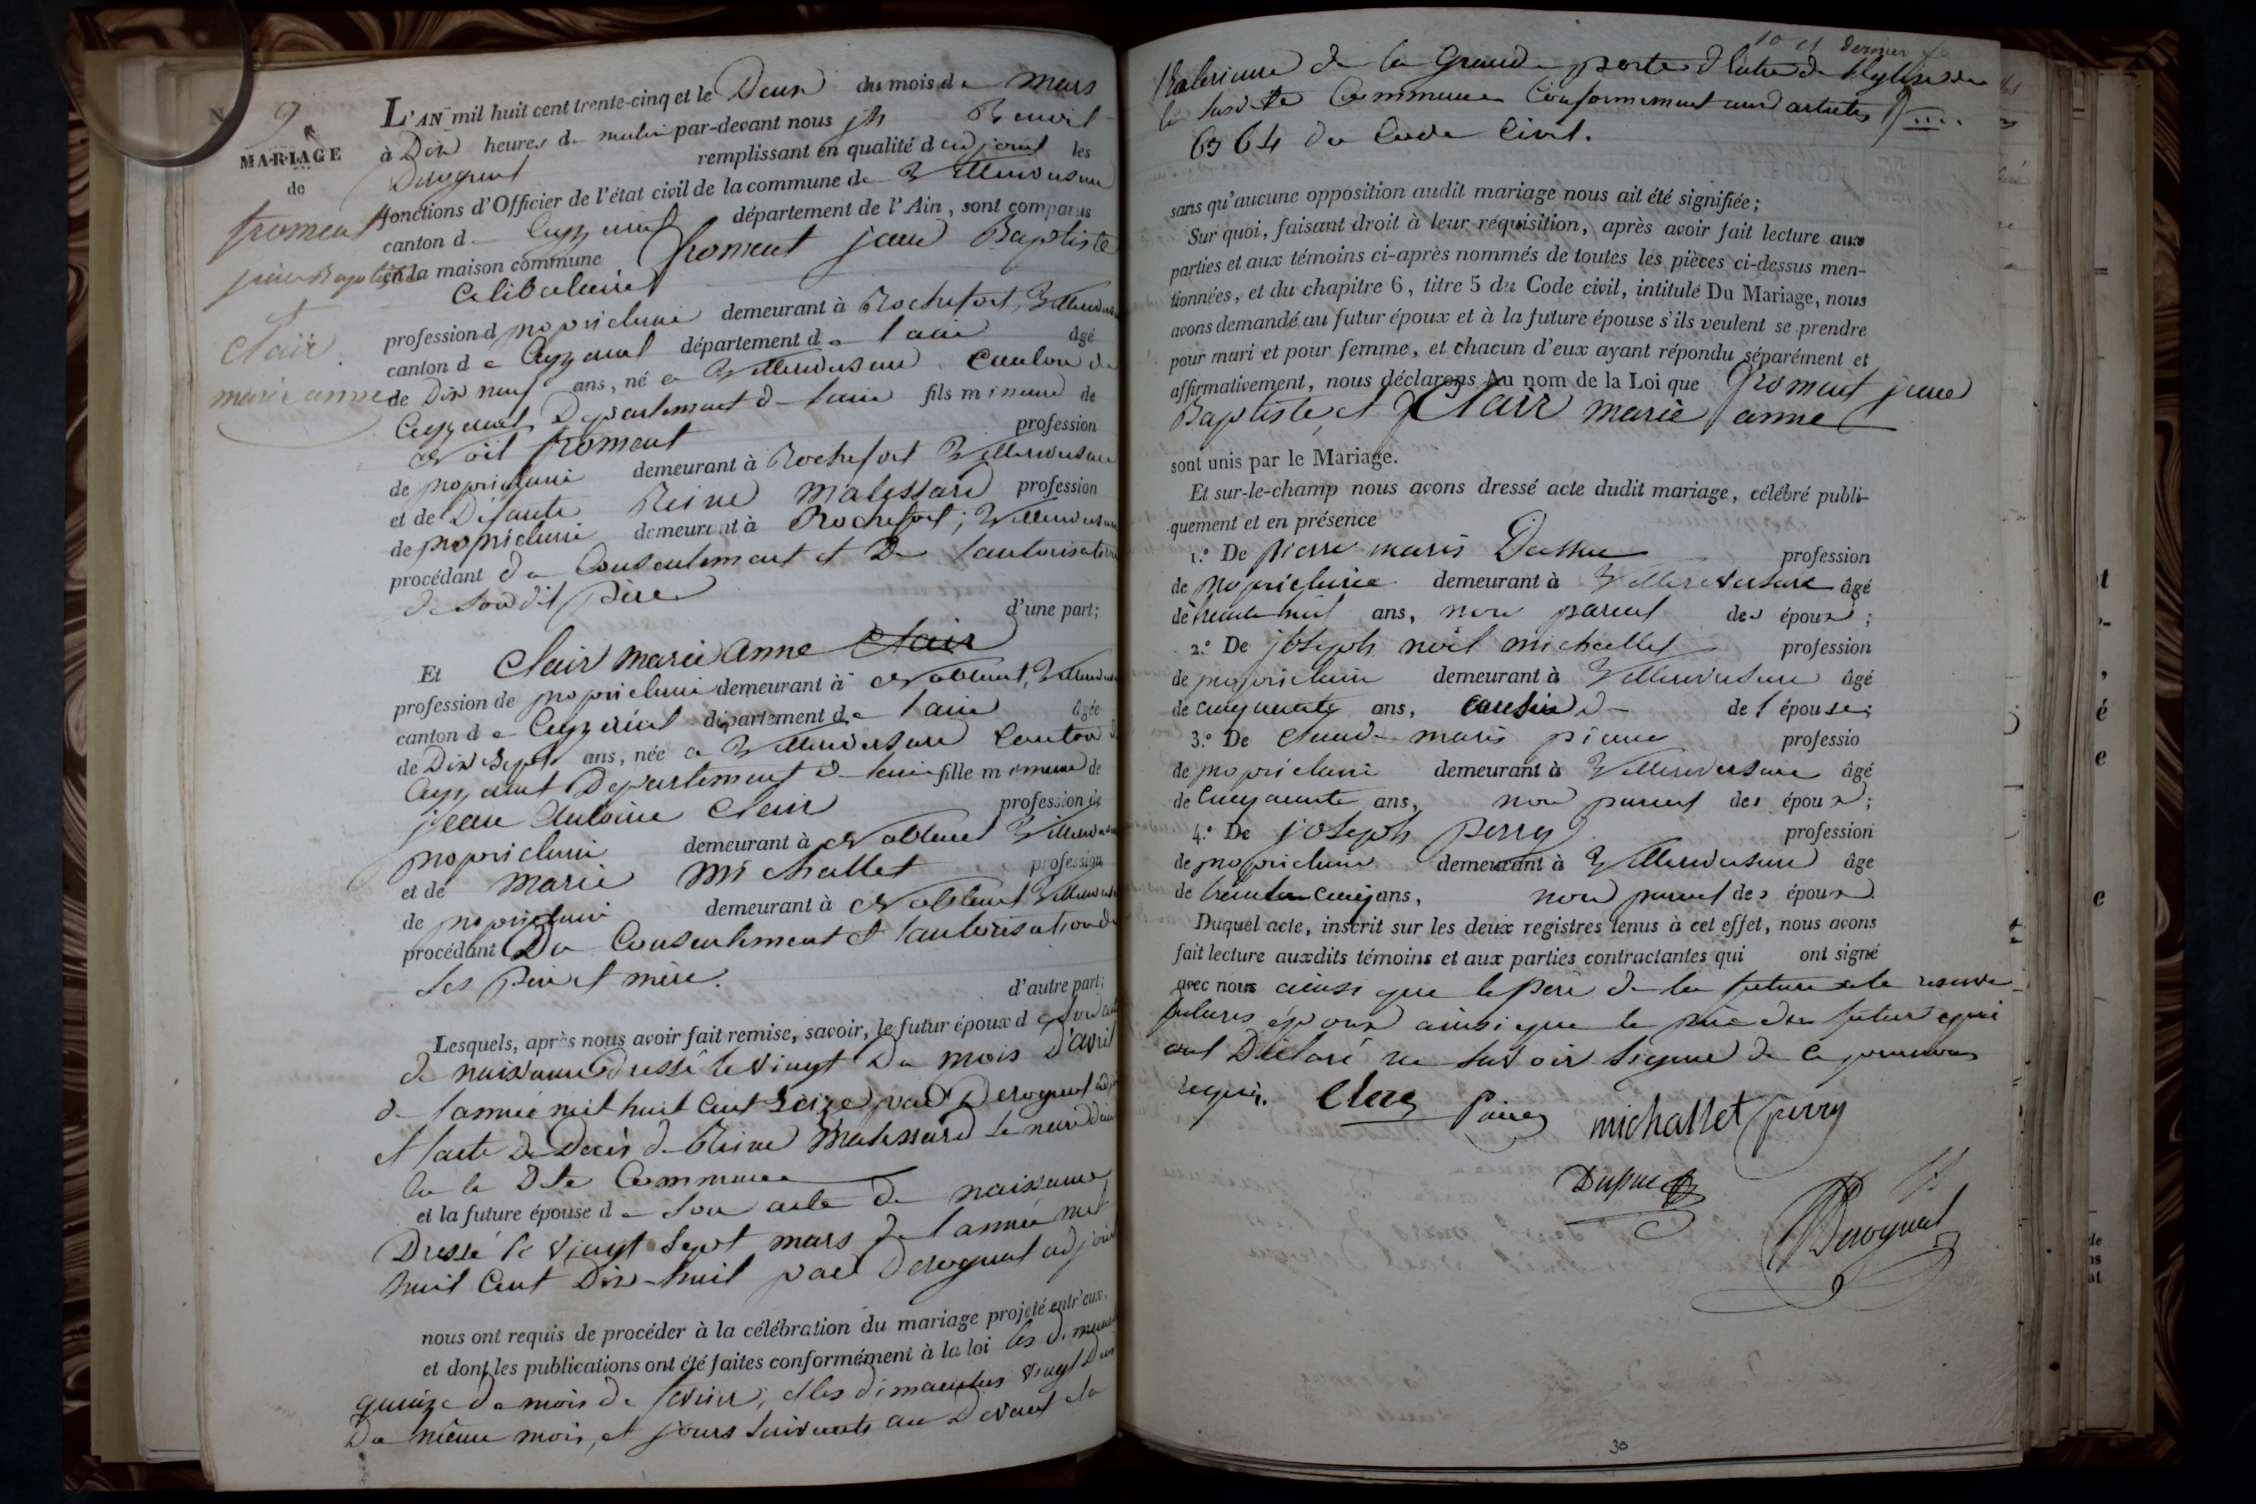 9
MARIAGE
de
froment
jean Baptiste
et
Clair
marie anne
L'AN mil huit cent trente-cinq et le Deux du mois de mars
à Dix heures du matin par-devant nous jh Benoit
Derognat remplissant en qualité d'adjoint les
fonctions d'Officier de l'état civil de la commune de Villereversure
canton de Ceyzeriat département de l'Ain, sont comparus
en la maison commune froment jean Baptiste
Celibataire
profession de proprietaire demeurant à Rochefort, Villereversure
canton de Ceyzeriat département de l'ain âgé
de Dix neuf ans, né a Villereversure Canton de
Ceyzeriat Departement de l'ain fils mineur de
Noël froment profession
de proprietaire demeurant à Rochefort Villereversure
et de Défunte Reine Malessard profession
de proprietaire demeurant à Rochefort, Villereversure
procédant du Consentement et De l'autorisation
de son dit Père
d'une part;
Et Clair marie anne Clair
profession de proprietaire demeurant à Noblent, Villereversure
canton de Ceyzeriat département de l'ain âgée
de Dix Sept ans, née a Villereversure Canton de
Ceyzeriat Departement de l'ain fille mineure de
jean Antoine Clair profession de
proprietaire demeurant à Noblent Villereversure
et de marie Michallet profession
de proprietaire demeurant à Noblent Villereversure
procédant Du Consentement et l'autorisation de
Ses Père et mère.
d'autre part;
Lesquels, après nous avoir fait remise, savoir, le futur époux de son acte
de naissance Dressé le vingt Du mois D'avril
de l'année mil huit Cent Seize par Derognat adjoint
et l'acte De Décès de Reine Malessard
de la Dte Commune
et la future épouse de son acte de naissance
Dressé le vingt Sept mars de l'année mil
huit Cent Dix-huit par Derognat adjoint
nous ont requis de procéder à la célébration du mariage projeté entr'eux,
et dont les publications ont été faites conformément à la loi les dimanches
quinze du mois de fevrier, et les dimanches vingt Deux
Du même mois, et jours Suivants au Devant et à
10 et dernier
l'Exterieure de la Grande porte d'entrée de l'Eglise de
la susdite Commune Conformement aux articles
63 64 du Code Civil.
sans qu'aucune opposition audit mariage nous ait été signifiée;
Sur quoi, faisant droit à leur réquisition, après avoir fait lecture aux
parties et aux témoins ci-après nommés de toutes les pièces ci-dessus men-
tionnées, et du chapitre 6, titre 5 du Code civil, intitulé Du Mariage, nous
avons demandé au futur époux et à la future épouse s'ils veulent se prendre
pour mari et pour femme, et chacun d'eux ayant répondu séparément et
affirmativement, nous déclarons Au nom de la Loi que froment jean
Baptiste, et Clair marie anne
sont unis par le Mariage.
Et sur-le-champ nous avons dressé acte dudit mariage, célébré publi-
quement et en présence
1.° De pierre marie profession
de proprietaire demeurant à Villereversure âgé
de trente huit ans, non parent des époux;
2.° De joseph noël michallet profession
de proprietaire demeurant à Villereversure âgé
de Cinquante ans, Cousin de de l'épouse;
3.° De Claude marie profession
de proprietaire demeurant à Villereversure âgé
de Cinquante ans, non parent des époux;
4.° De joseph perry profession
de proprietaire demeurant à Villereversure âgé
de trente Cinq ans, non parent des époux.
Duquel acte, inscrit sur les deux registres tenus à cet effet, nous avons
fait lecture auxdits témoins et aux parties contractantes qui ont signé
avec nous ainsi que le père de la future a la reserve
futurs époux ainsi que le père du futur qui
ont Déclaré ne Savoir Signer de Ce
requis.
Clerc michallet perry
Derognat
30